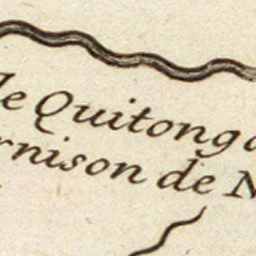 de Quitonga
rnison de N